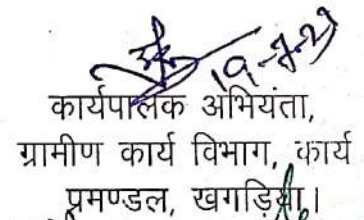 कार्यपालक अभियंता,
ग्रामीण कार्य विभाग, कार्य
प्रमण्डल, खगड़िया।